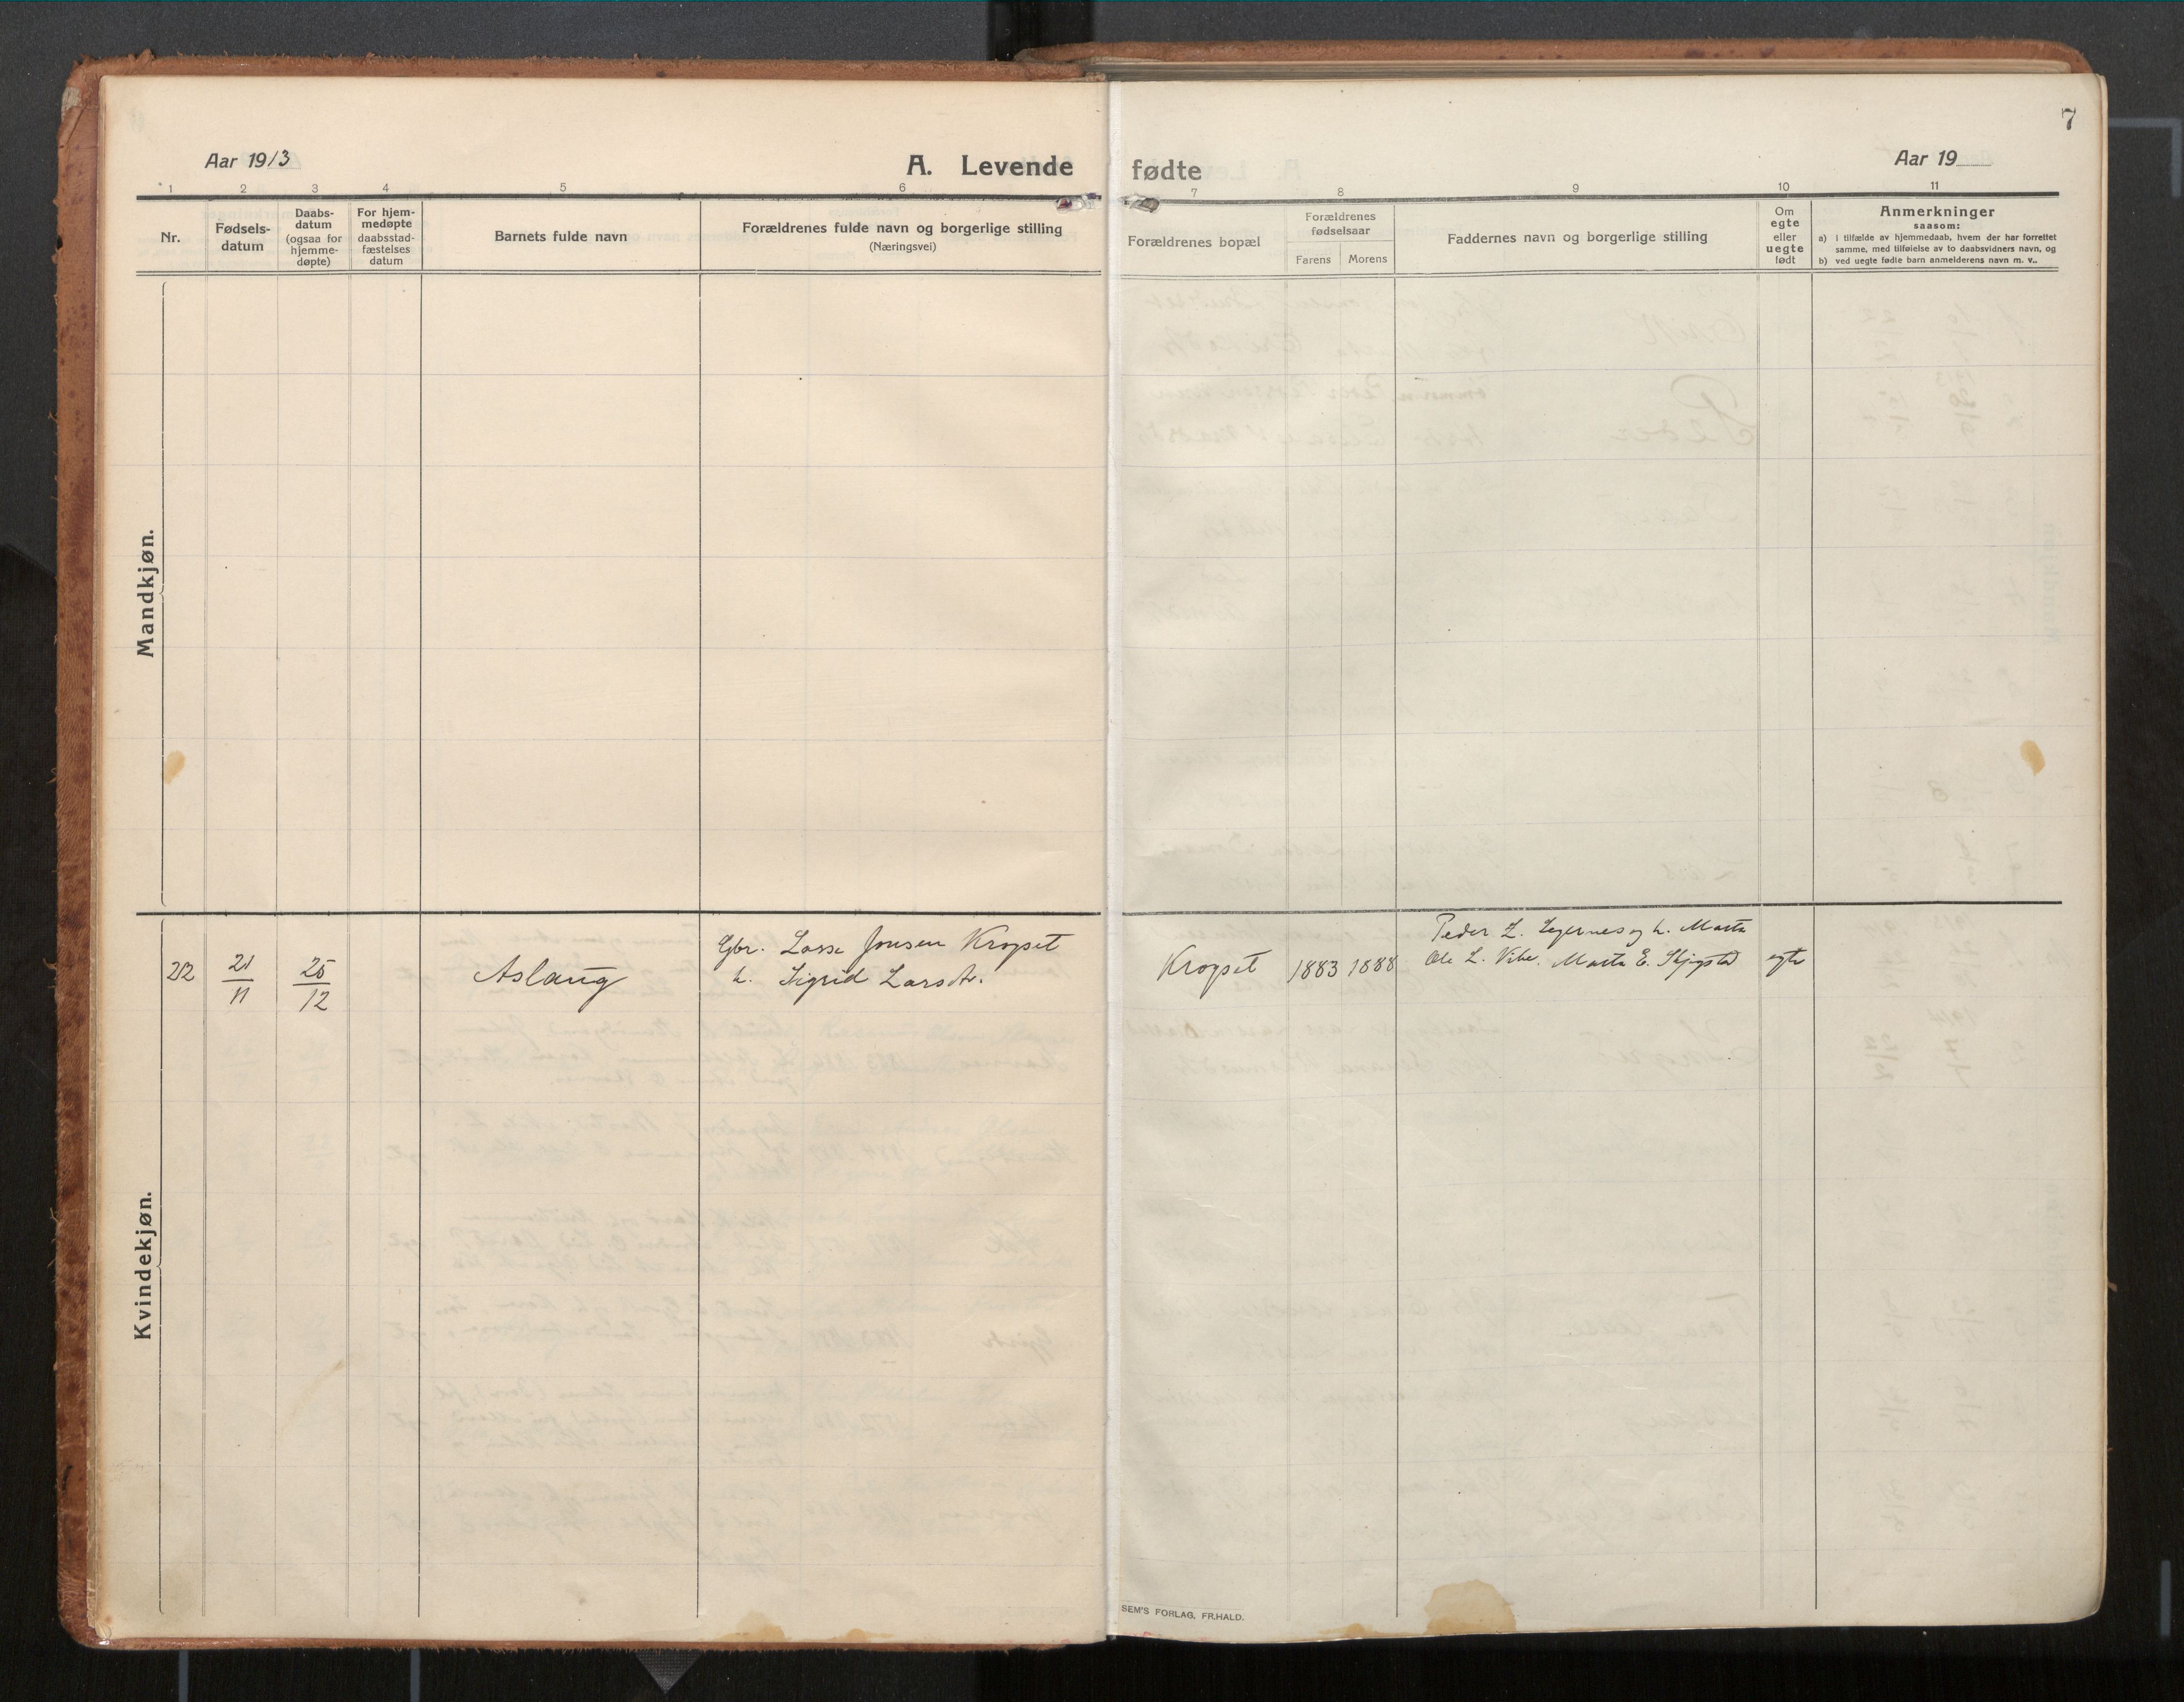 7
Aar 1913
A. Levende fødte
Aar 19
1 2 3 4 5 6 7 8 9 10 11
Nr.
Fødsels-
datum
Daabs-
datum
(ogsaa for
hjemme-
døpte)
For hjem-
medøpte
daabsstad-
fæstelses
datum
Barnets fulde navn
Forældrenes fulde navn og borgerlige stilling
(Næringsvei)
Forældrenes bopæl
Forældrenes
fødselsaar
Farens Morens
Faddernes navn og borgerlige stilling
Om
egte
eller
uegte
født
Anmerkninger
saasom:
a) i tilfælde av hjemmedaab, hvem der har forrettet
samme, med tilføielse av to daabsvidners navn, og
b) ved uegte fødte barn anmelderens navn m. v..
Mandkjøn.
Kvindekjøn.
22
21
11
25
12
Aslaug
Gbr. Lasse Jonsen Kropset
h. Sigrid Larsdtr.
Kropset
1883 1888
Peder L. og h. Marta
Ole L. Vibe. Marta E.
egte
SEM'S FORLAG, FR.HALD.